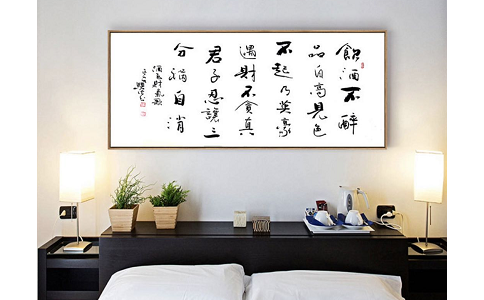 飲酒不醉
品自高見色
不起乃英豪
遇財不貪真
君子忍讓三
分禍自消
酒色財氣歌